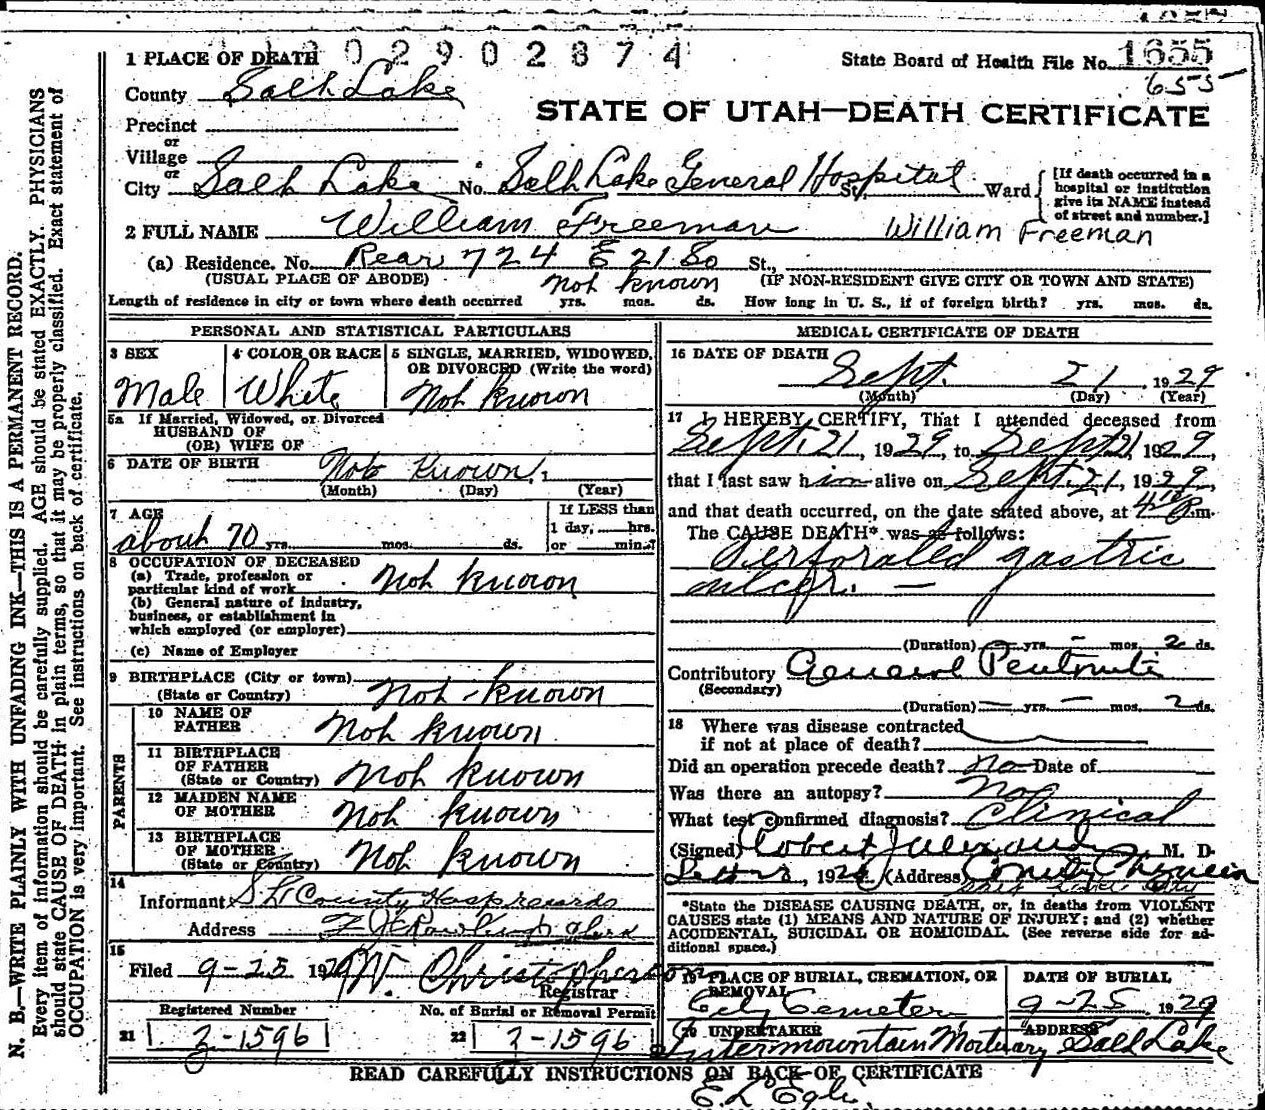 02902874
1 PLACE OF DEATH
State Board of Health File No. 1655
655
County Salt Lake
STATE OF UTAH—DEATH CERTIFICATE
Precinct
or
Village
or
City Salt Lake No. Salt Lake General Hospital St., Ward
[If death occurred in a hospital or institution give its NAME instead of street and number.]
2 FULL NAME William Freeman William Freeman
(a) Residence. No. Rear 724 E 21 So St.,
(USUAL PLACE OF ABODE) (IF NON-RESIDENT GIVE CITY OR TOWN AND STATE)
not known
Length of residence in city or town where death occurred yrs. mos. ds. How long in U. S., if of foreign birth? yrs. mos. ds.
PERSONAL AND STATISTICAL PARTICULARS
3 SEX
Male
4 COLOR OR RACE
White
5 SINGLE, MARRIED, WIDOWED,
OR DIVORCED (Write the word)
Not known
5a If Married, Widowed, or Divorced
HUSBAND OF
(OR) WIFE OF
6 DATE OF BIRTH Not known
(Month) (Day) (Year)
7 AGE
about 70 yrs. mos. ds.
If LESS than
1 day, hrs.
or min.?
8 OCCUPATION OF DECEASED
(a) Trade, profession or
particular kind of work not known
(b) General nature of industry,
business, or establishment in
which employed (or employer)
(c) Name of Employer
9 BIRTHPLACE (City or town)
(State or Country) not known
PARENTS
10 NAME OF
FATHER not known
11 BIRTHPLACE
OF FATHER
(State or Country) not known
12 MAIDEN NAME
OF MOTHER not known
13 BIRTHPLACE
OF MOTHER
(State or Country) not known
14
Informant S L County Hosp records
Address Clerk
15
Filed 9-25 1929 W. Christopherson
Registrar
Registered Number
21 2-1596
No. of Burial or Removal Permit
22 2-1596
MEDICAL CERTIFICATE OF DEATH
16 DATE OF DEATH
Sept. 21, 1929
(Month) (Day) (Year)
17 I HEREBY CERTIFY, That I attended deceased from
Sept. 21, 1929, to Sept 21, 1929,
that I last saw him alive on Sept. 21, 1929,
and that death occurred, on the date stated above, at p.m.
The CAUSE DEATH* was as follows:
Perforated gastric
ulcer. —
(Duration) — yrs. — mos. 2 ds.
Contributory General Peritonitis
(Secondary)
(Duration) — yrs. — mos. 2 ds.
18 Where was disease contracted
if not at place of death?
Did an operation precede death? no Date of
Was there an autopsy? No
What test confirmed diagnosis? Clinical
(Signed) Robert M. D.
, 1929 (Address) County
Salt Lake City
*State the DISEASE CAUSING DEATH, or, in deaths from VIOLENT
CAUSES state (1) MEANS AND NATURE OF INJURY; and (2) whether
ACCIDENTAL, SUICIDAL OR HOMICIDAL. (See reverse side for ad-
ditional space.)
19 PLACE OF BURIAL, CREMATION, OR
REMOVAL
City Cemetery
DATE OF BURIAL
9-25 1929
20 UNDERTAKER
Intermountain Mortuary
ADDRESS
Salt Lake
READ CAREFULLY INSTRUCTIONS ON BACK OF CERTIFICATE
E. L Egli.
N. B.—WRITE PLAINLY WITH UNFADING INK—THIS IS A PERMANENT RECORD.
Every item of information should be carefully supplied. AGE should be stated EXACTLY. PHYSICIANS
should state CAUSE OF DEATH in plain terms, so that it may be properly classified. Exact statement of
OCCUPATION is very important. See instructions on back of certificate.